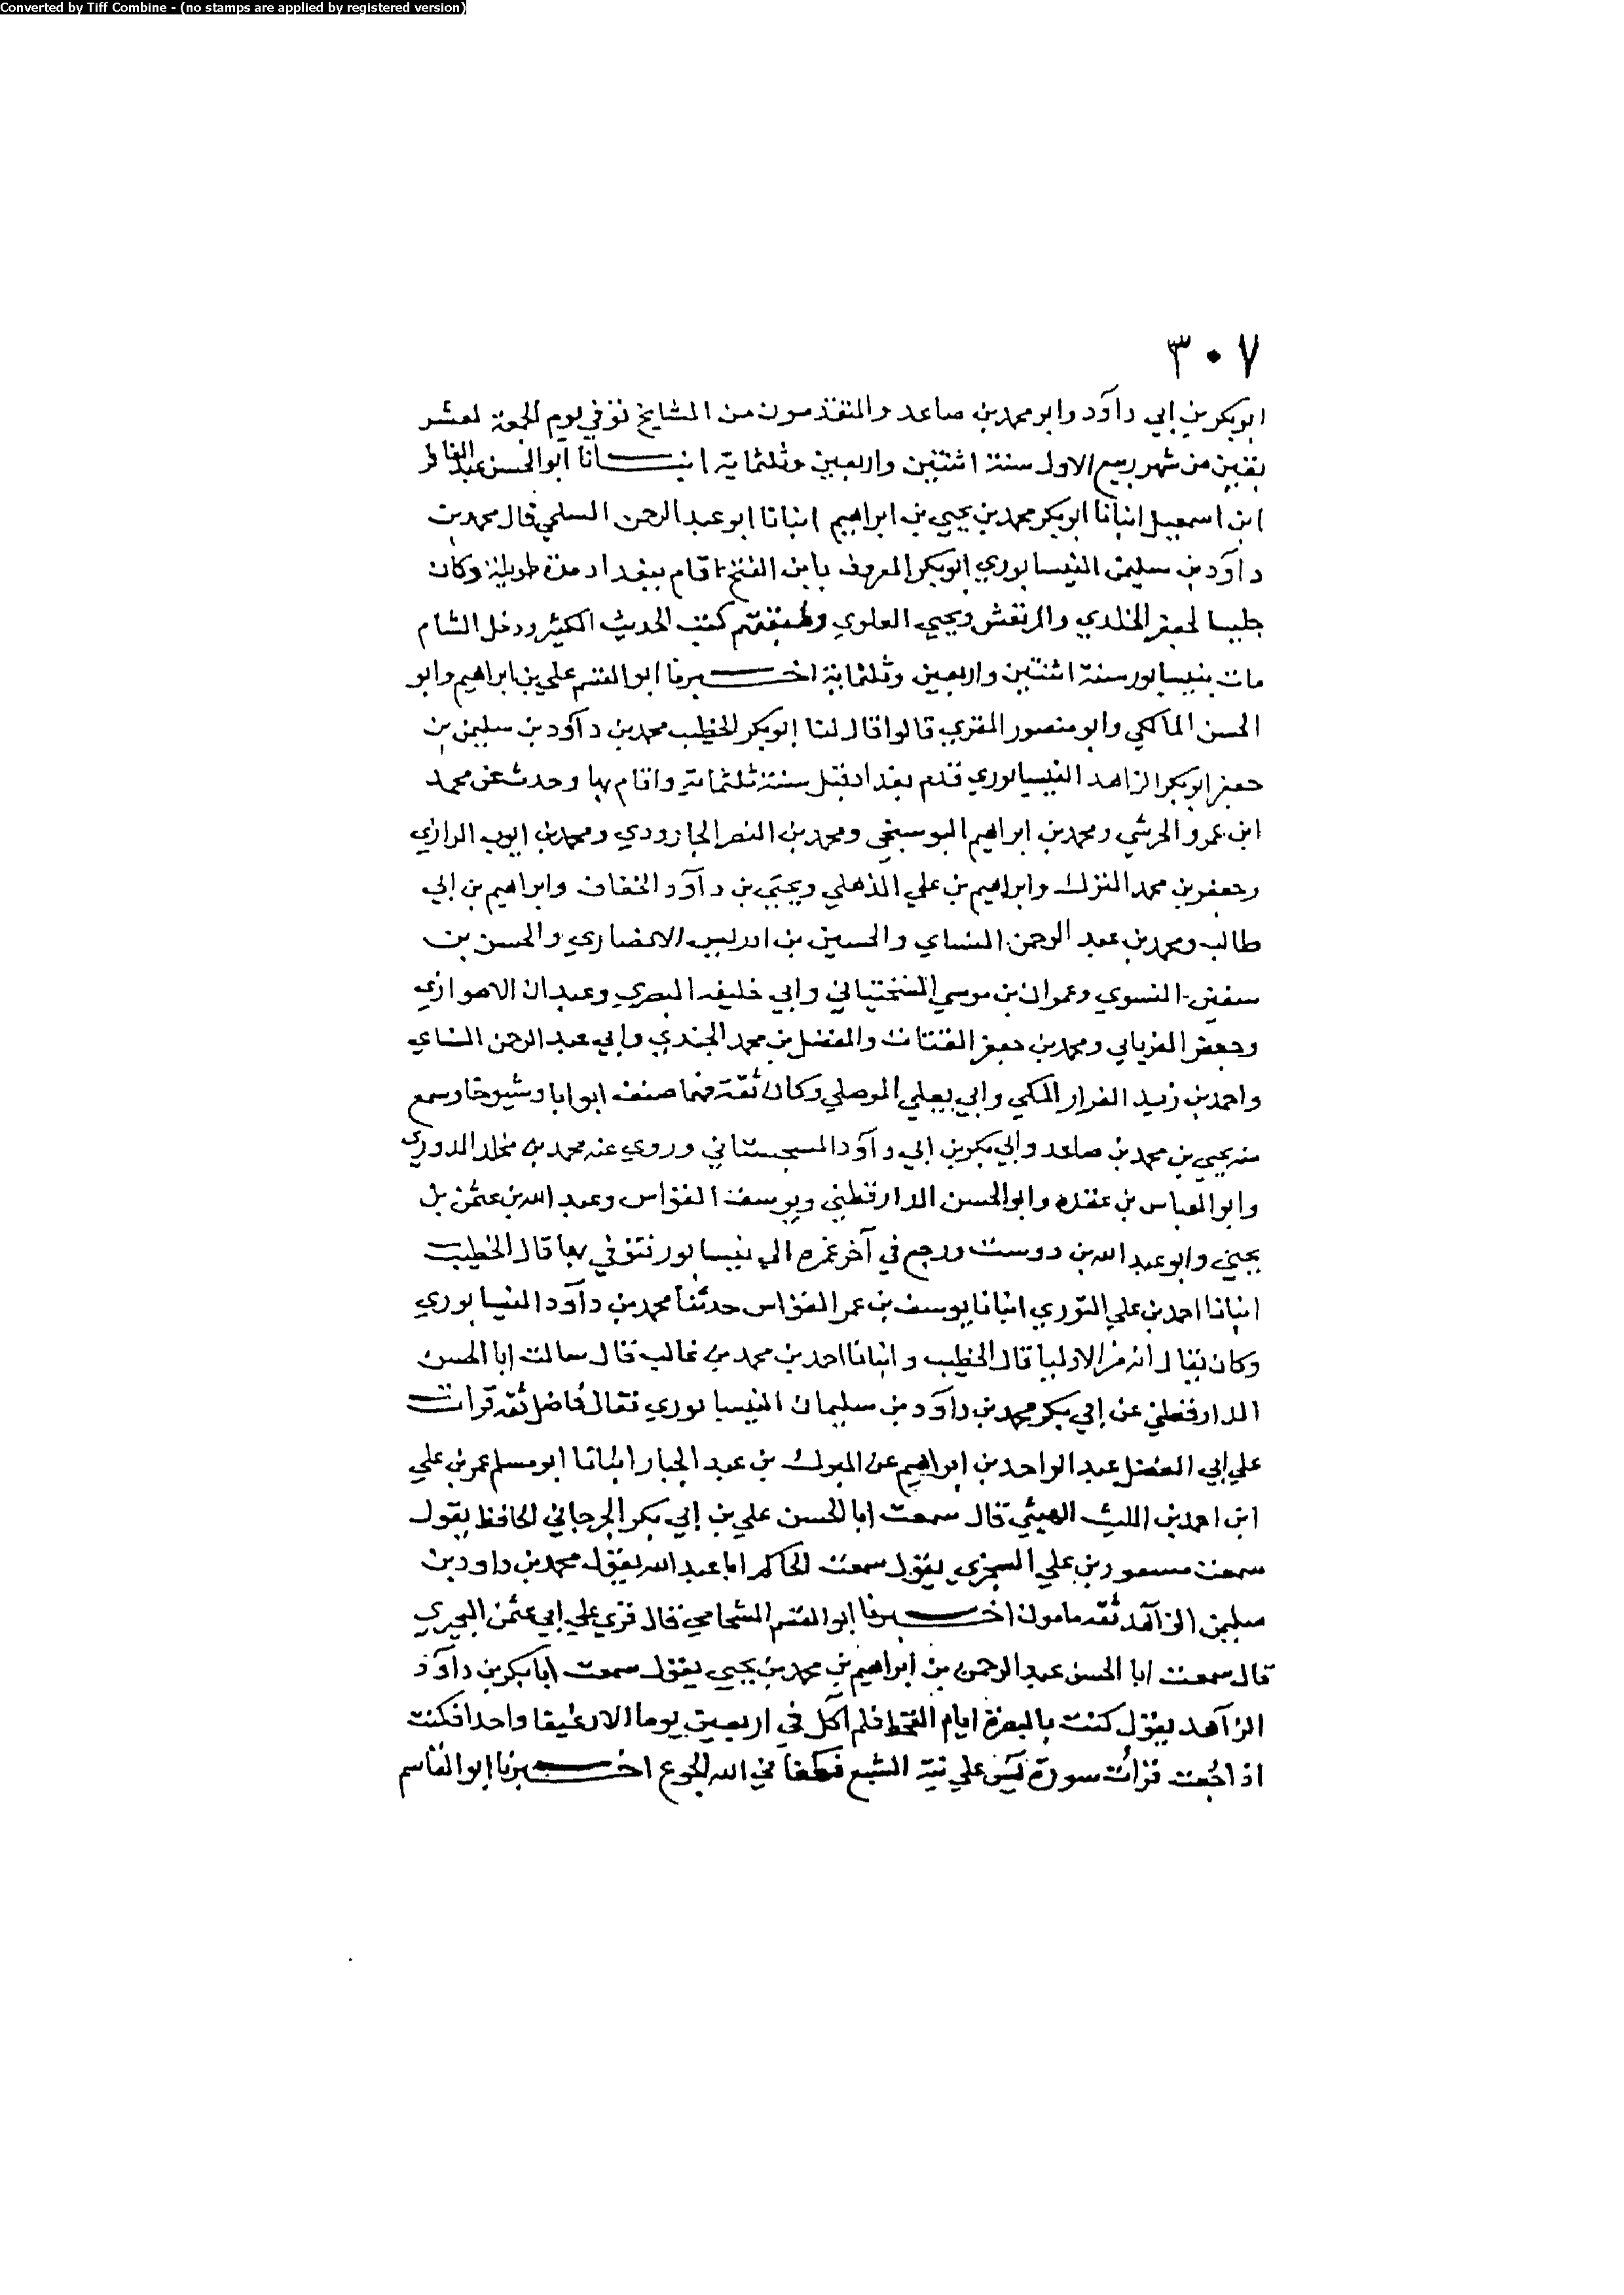 Converted by Tiff Combine - (no stamps are applied by registered version)
٣٠٧
ابو بكر بن ابي داود وابو محمد بن صاعد والمتقدمون من المشايخ توفي يوم الجمعة لعشر
بقين من شهر ربيع الاول سنة اثنتين واربعين وثلثماية انبـــانا ابو الحسن عبد الغافر
ابن اسمعيل انبانا ابو بكر محمد بن يحيي بن ابراهيم انبانا ابو عبد الرحمن السلمي قال محمد بن
داود بن سليمن النيسابوري ابو بكر المعروف بابن الفتح اقام ببغداد مدة طويلة وكان
جليسا لجعفر الخلدي والمرتعش ويحيي العلوي وطبقتهم كتب الحديث الكثير ودخل الشام
مات بنيسابور سنة اثنتين واربعين وثلثماية اخـــبرنا ابو القسم علي بن ابراهيم وابو
الحسن المالكي وابو منصور المقري قالوا قال لنا ابو بكر الخطيب محمد بن داود بن سليمن بن
جعفر ابو بكر الزاهد النيسابوري قدم بغداد قبل سنة ثلثماية واقام بها وحدث عن محمد
ابن عمرو الحرشي ومحمد بن ابراهيم البوسنجي ومحمد بن النصر الجارودي ومحمد بن ايوب الرازي
وجعفر بن محمد الترك وابراهيم بن علي الذهلي ويحيي بن داود الخفاف وابراهيم بن ابي
طالب ومحمد بن عبد الرحمن النساي والحسين بن ادريس الانصاري والحسن بن
سفين النسوي وعمران بن موسي السختياني وابي خليفه البصري وعبدان الاهوازي
وجعفر الفريابي ومحمد بن جعفر القتات والمفضل بن محمد الجندي وابي عبد الرحمن النساي
واحمد بن زيد القزاز المكي وابي يعلي الموصلي وكان ثقة فهما صنف ابوابا وشيوخا وسمع
منه يحيي بن محمد بن صاعد وابي بكر بن ابي داود السجستاني وروي عنه محمد بن مخلد الدوري
وابو العباس بن عقده وابو الحسن الدارقطني ويوسف القواس وعبد الله بن عثمن بن
يحيي وابو عبد الله بن دوست ورجع في آخر عمره الي نيسابور فتوفي بها قال الخطيب
انبانا احمد بن علي التوزي انبانا يوسف بن عمر القواس حدثنا محمد بن داود النيسابوري
وكان يقال انه من الاوليا قال الخطيب وانبانا احمد بن محمد بن غالب قال سالت ابا الحسن
الدارقطني عن ابي بكر محمد بن داود بن سليمان النيسابوري فقال فاضل ثقه قرات
علي ابي الفضل عبد الواحد بن ابراهيم عن المبرك بن عبد الجبار انبانا ابو مسلم عمر بن علي
ابن احمد بن الليث الليثي قال سمعت ابا الحسن علي بن ابي بكر الجرجاني الحافظ يقول
سمعت مسعود بن علي السجزي يقول سمعت الحاكم ابا عبد الله يقول محمد بن داود بن
سليمن الزاهد ثقه مامون اخـــبرنا ابو القسم الشحامي قال قري علي ابي عثمن البحيري
قال سمعت ابا الحسن عبد الرحمن بن ابراهيم بن محمد بن يحيي يقول سمعت ابا بكر بن داود
الزاهد يقول كنت بالبصرة ايام القحط فلم آكل في اربعين يوما الا رغيفا واحدا فكنت
اذا جعت قرات سورة يس علي نية الشبع فكفاني الله الجوع اخـــبرنا ابو القاسم